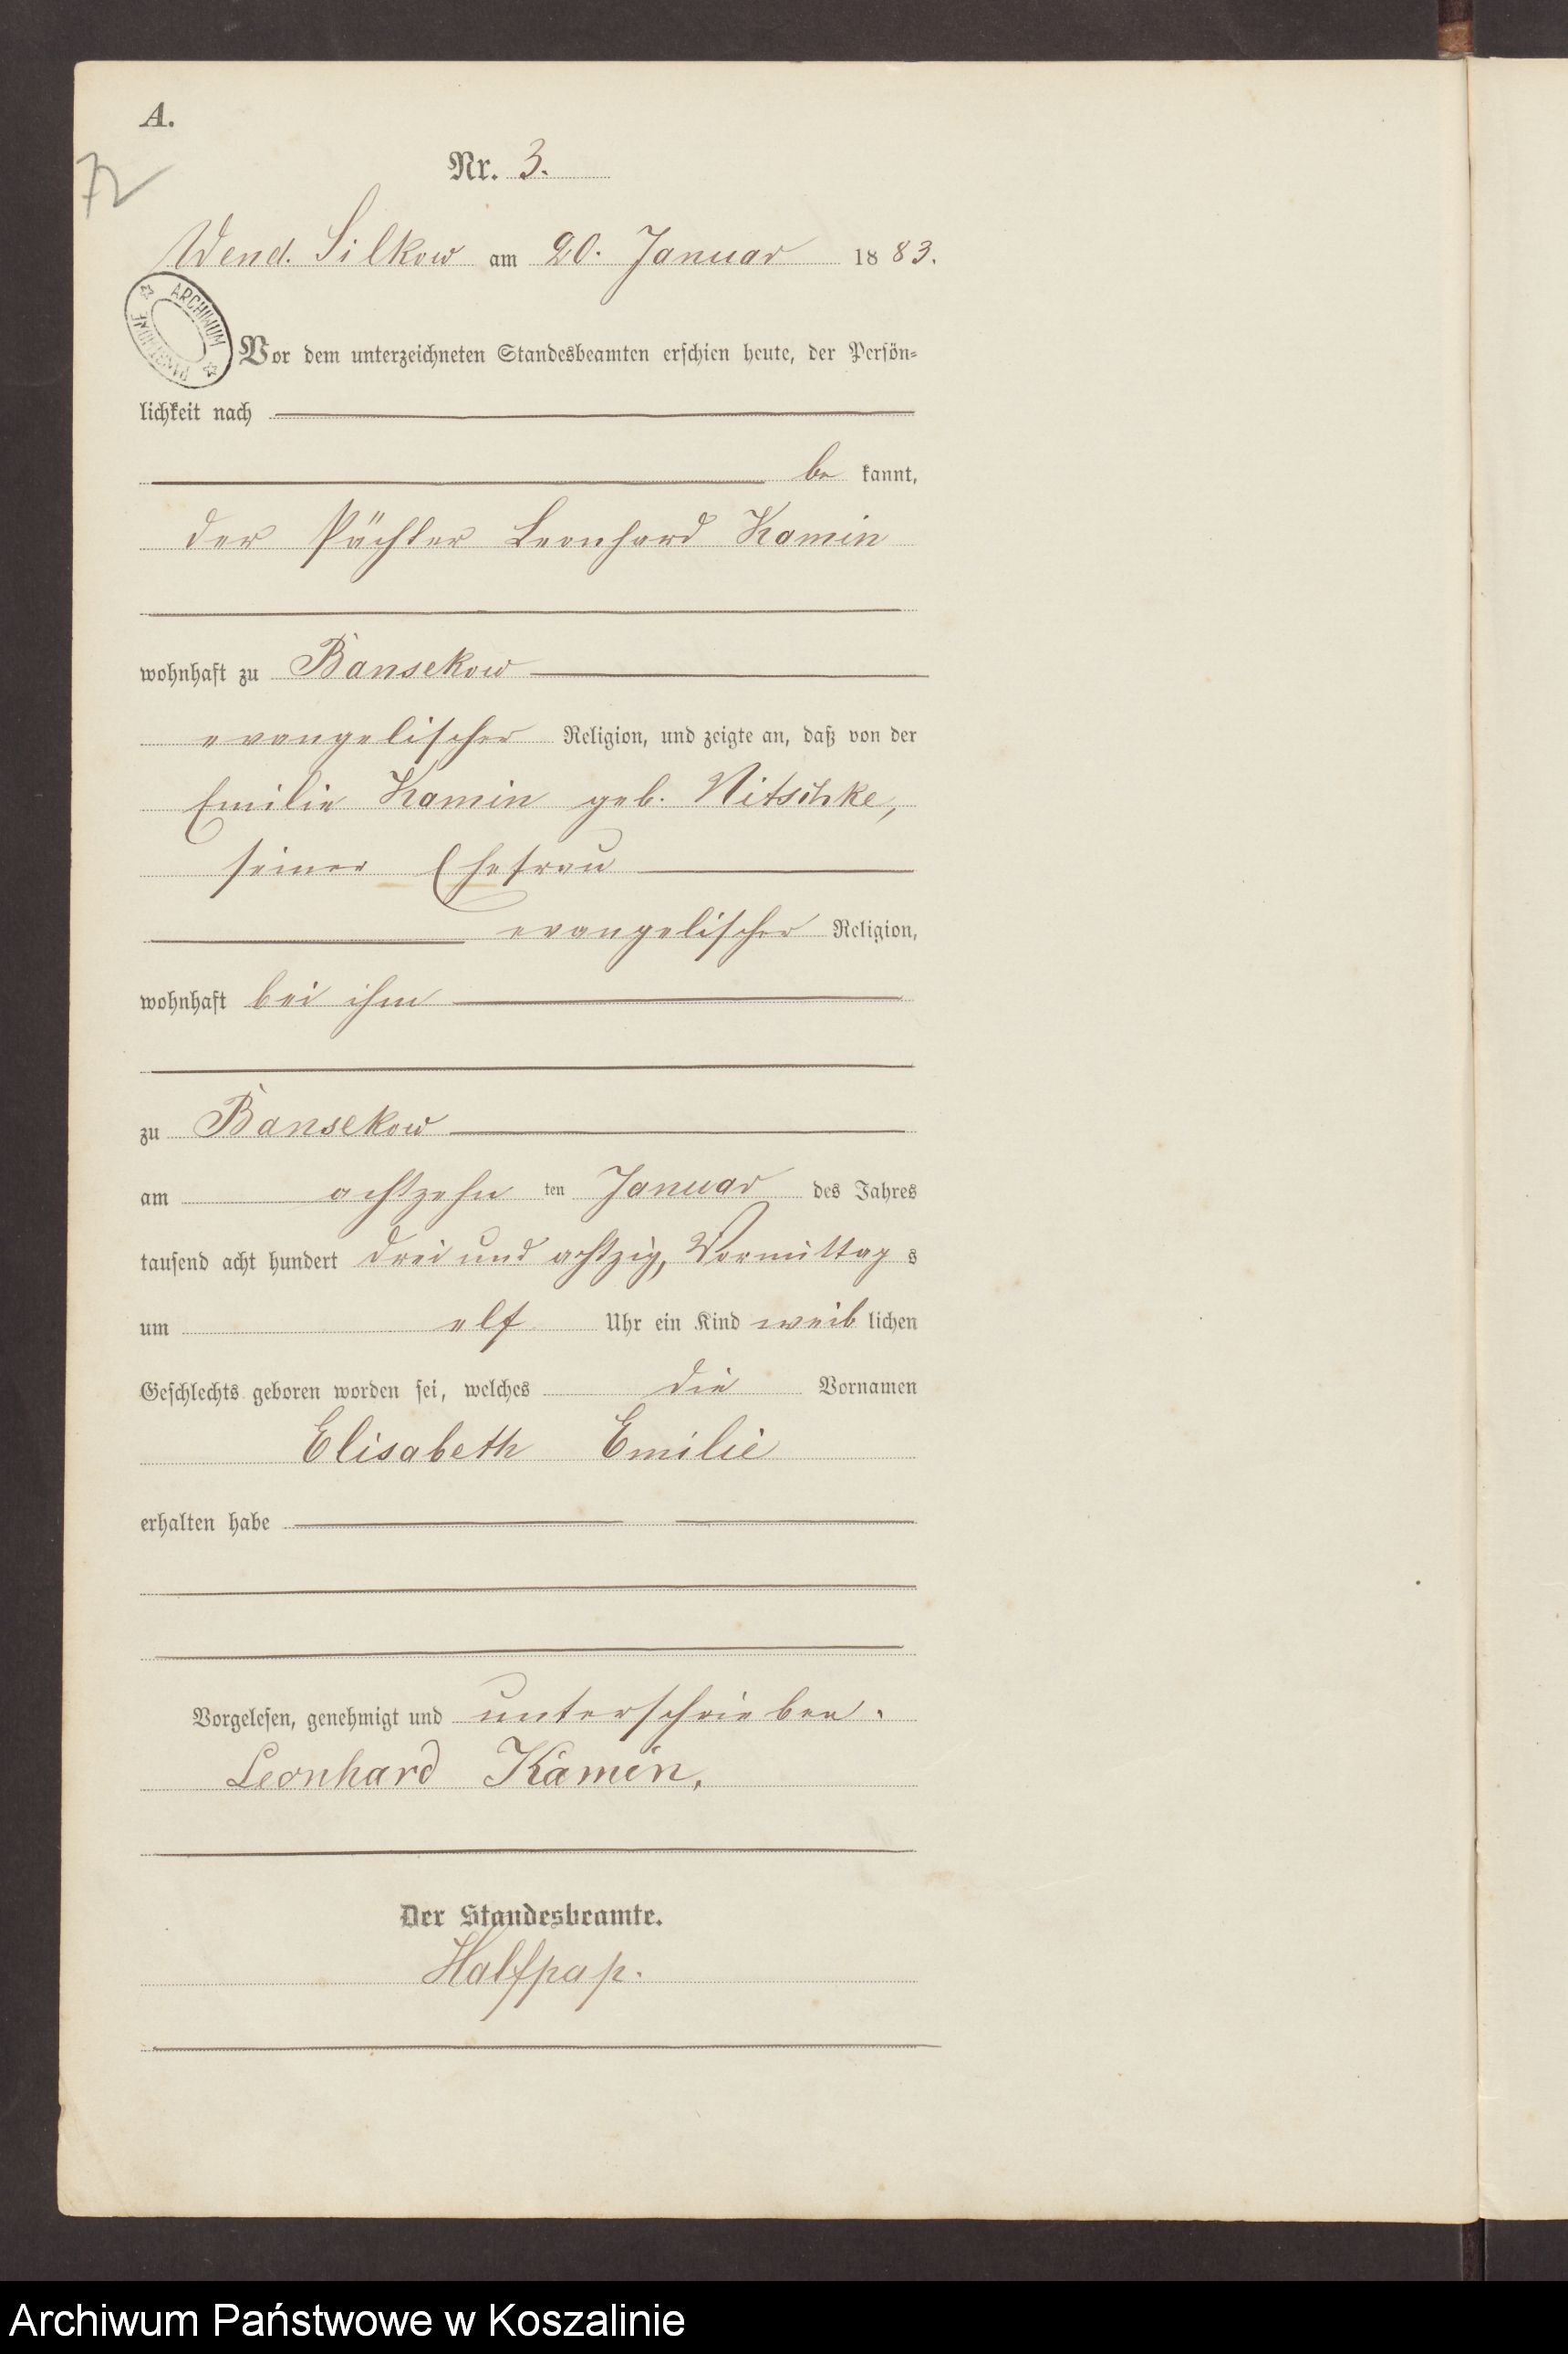 A.
72
Nr. 3.
Wend. Silkow am 20. Januar 1883.
ARCHIWUM
PAŃSTWOWE
Vor dem unterzeichneten Standesbeamten erschien heute, der Persön-
lichkeit nach
be kannt,
der Pächter Leonhard Kamin
wohnhaft zu Bansekow
evangelischer Religion, und zeigte an, daß von der
Emilie Kamin geb. Nitschke,
seiner Ehefrau
evangelischer Religion,
wohnhaft bei ihm
zu Bansekow
am achtzehn ten Januar des Jahres
tausend acht hundert drei und achtzig, Vormittag s
um elf Uhr ein Kind weib lichen
Geschlechts geboren worden sei, welches die Vornamen
Elisabeth Emilie
erhalten habe
Vorgelesen, genehmigt und unterschrieben.
Leonhard Kamin.
Der Standesbeamte.
Halfpap.
Archiwum Państwowe w Koszalinie